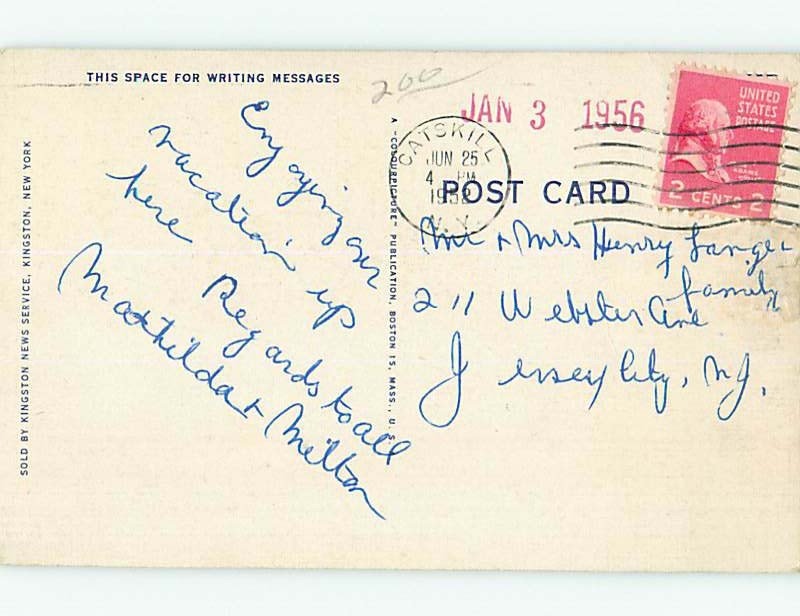 THIS SPACE FOR WRITING MESSAGES
200
JAN 3 1956
UNITED
STATES
POSTAGE
ADAMS
2 CENTS 2
CATSKILL
JUN 25
4 PM
N. Y.
POST CARD
SOLD BY KINGSTON NEWS SERVICE, KINGSTON, NEW YORK
A "COLOURPICTURE" PUBLICATION, BOSTON 15, MASS., U. S.
Enjoying our
vacation up
here Regards to all
Mathilda + Milton
Mr + Mrs Henry Langer
family
211 Webster Ave
Jersey City, N.J.